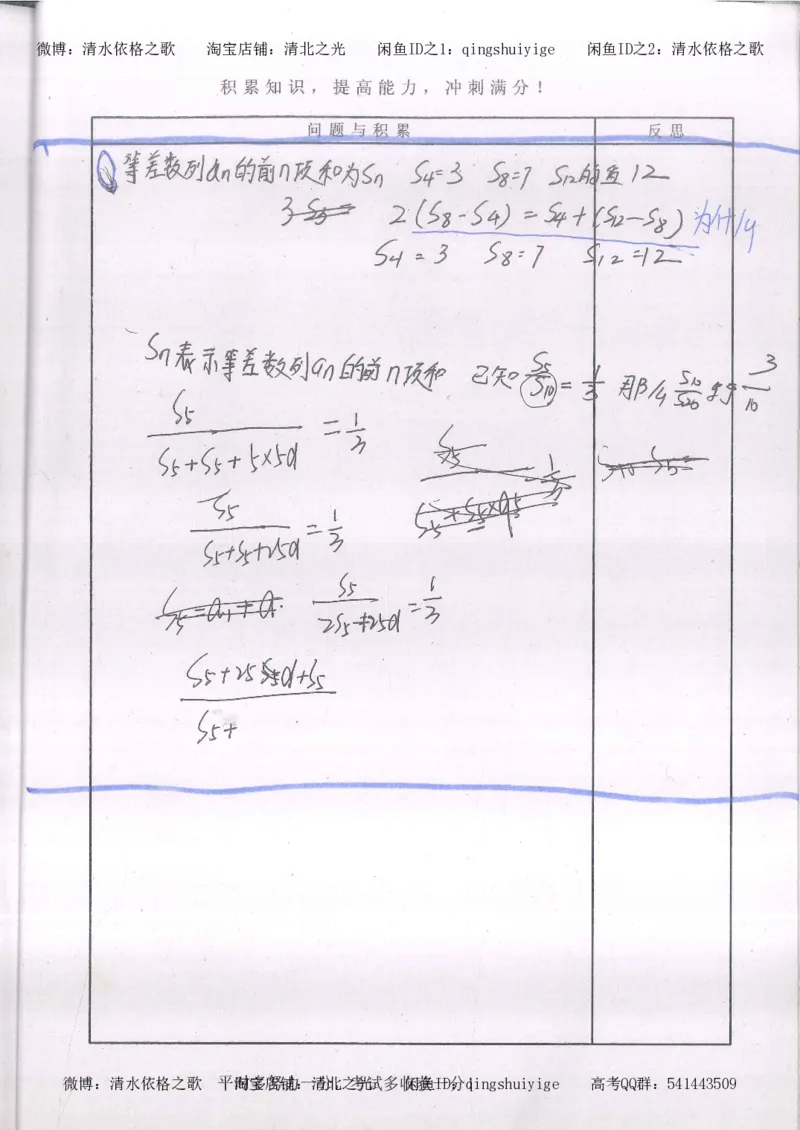 微博：清水依格之歌 淘宝店铺：清北之光 闲鱼ID之1：qingshuiyige 闲鱼ID之2：清水依格之歌
积累知识，提高能力，冲刺满分！
问题与积累 反思
等差数列an的前n项和为Sn S4=3 S8=7 S12的值12
2(S8-S4)=S4+(S12-S8) 为什么
S4=3 S8=7 S12=12
Sn表示等差数列an的前n项和 已知 S5/S10 = 1/3 那么 S10/S20 等于 3/10
S5/(S5+S5+5×5d) = 1/3
S5/(S5+S5+25d) = 1/3
S5/(2S5+25d) = 1/3
S5+25d+S5
S5+
微博：清水依格之歌 淘宝店铺：清北之光 闲鱼ID：qingshuiyige 高考QQ群：541443509